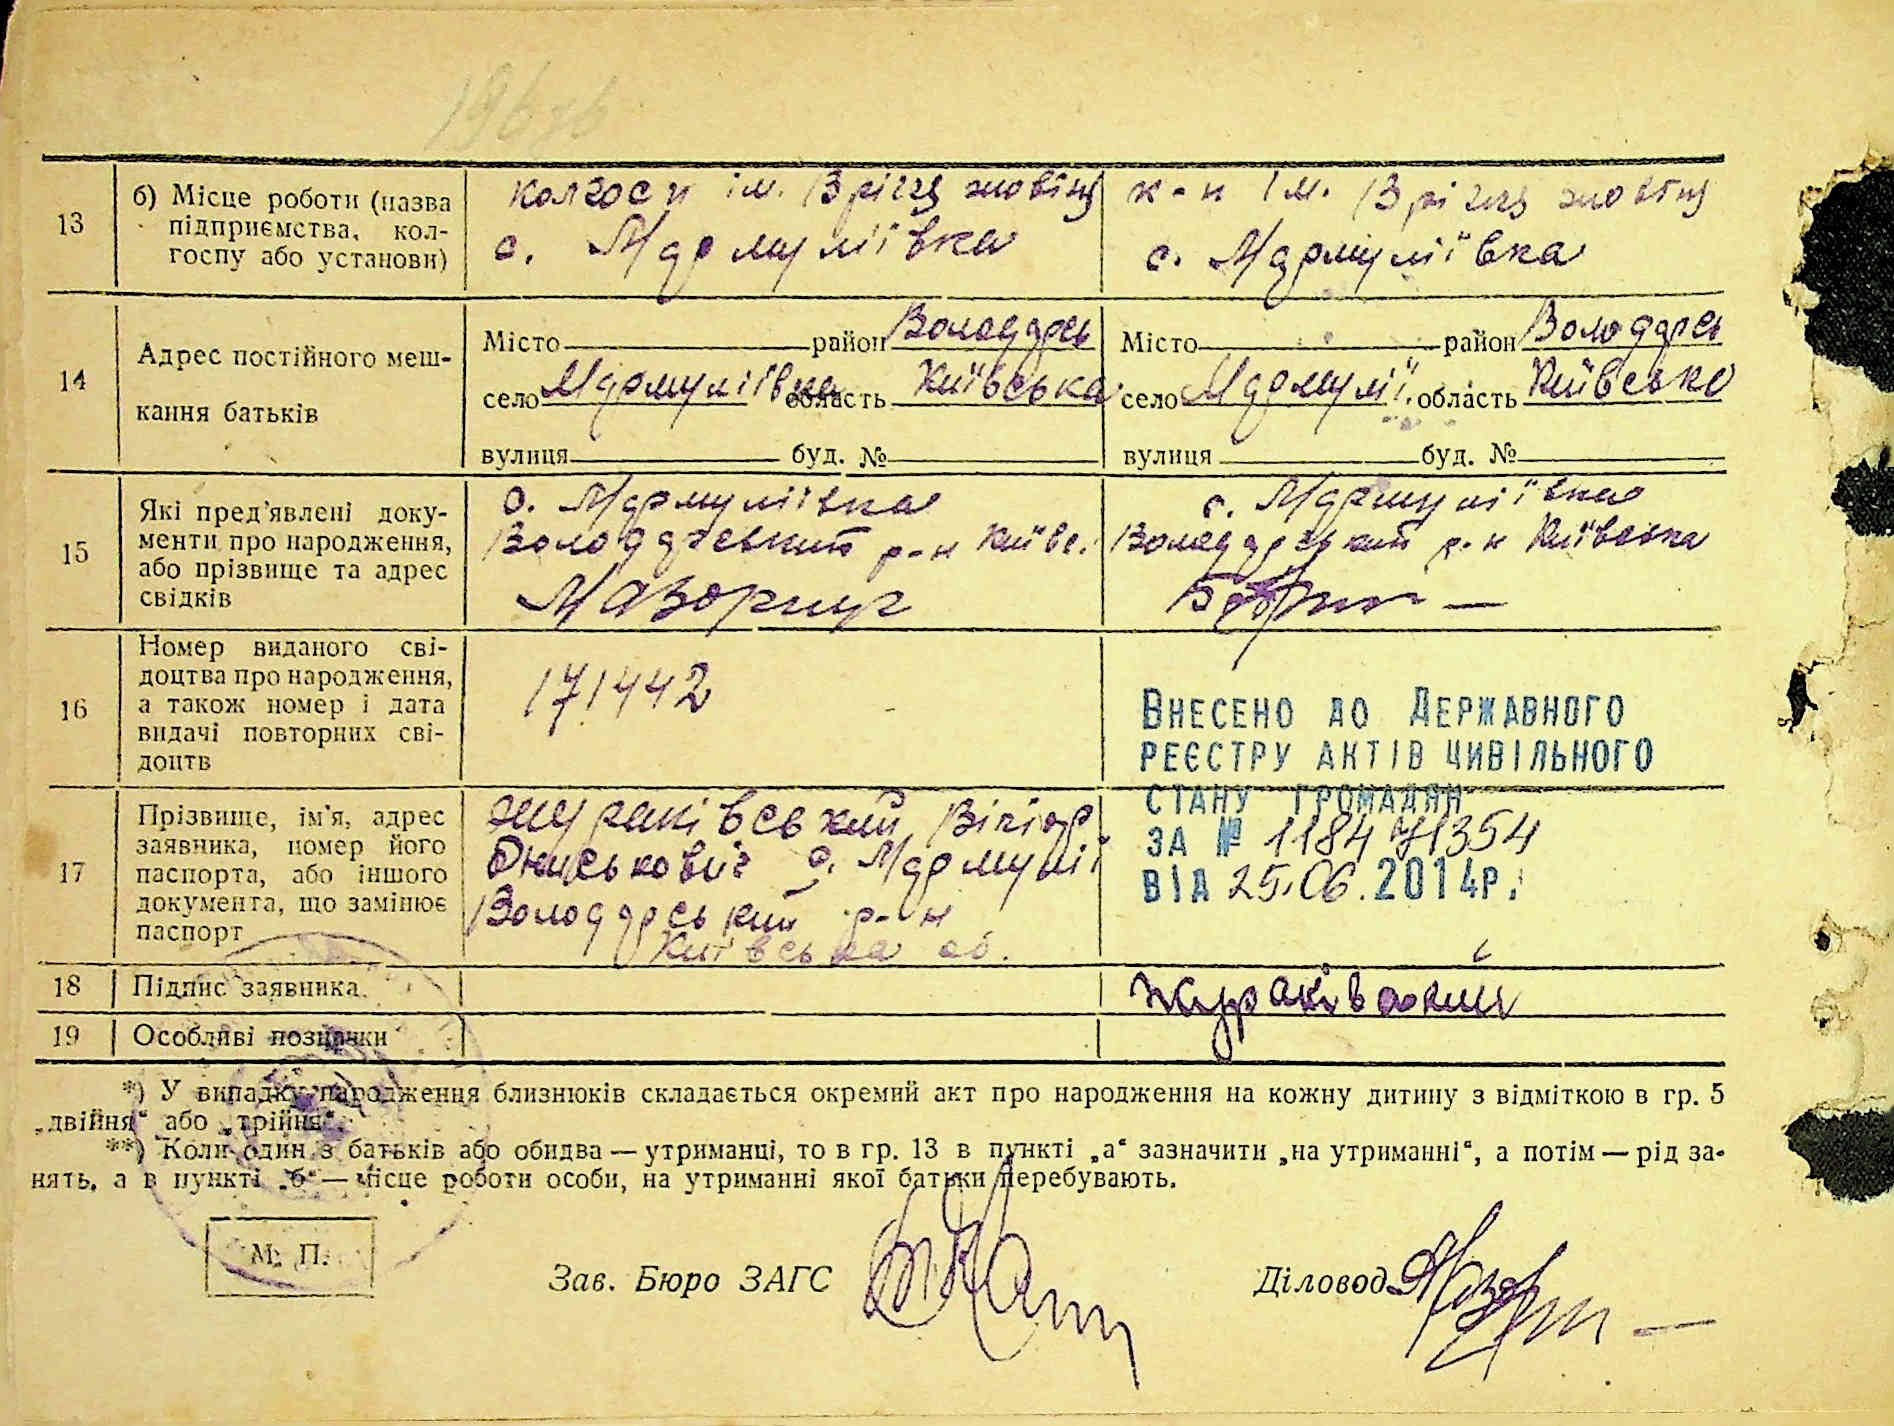 13
б) Місце роботи (назва
підприємства, кол-
госпу або установи)
колгосп ім. 13 річчя жовтня
с. Мармуліївка
к-п ім. 13 річчя жовтня
с. Мармуліївка
14
Адрес постійного меш-
кання батьків
Місто район Володарсь
село Мармуліївка область Київська
вулиця буд. №
Місто район Володарсь
село Мармулії. область Київсько
вулиця буд. №
15
Які пред'явлені доку-
менти про народження,
або прізвище та адрес
свідків
с. Мармуліївка
Володарський р-н Київс.
с. Мармуліївка
Володарський р-н Київська
16
Номер виданого сві-
доцтва про народження,
а також номер і дата
видачі повторних сві-
доцтв
171442
ВНЕСЕНО ДО ДЕРЖАВНОГО
РЕЄСТРУ АКТІВ ЦИВІЛЬНОГО
СТАНУ ГРОМАДЯН
ЗА №
ВІД 25.06.2014р.
17
Прізвище, ім'я, адрес
заявника, номер його
паспорта, або іншого
документа, що замінює
паспорт
Жураківський
Ониськович с. Мармулії
Володарський р-н
Київська об.
18
Підпис заявника
Жураківський
19
Особливі позначки
*) У випадку народження близнюків складається окремий акт про народження на кожну дитину з відміткою в гр. 5
„двійня“ або „трійня“.
**) Коли один з батьків або обидва — утриманці, то в гр. 13 в пункті „а“ зазначити „на утриманні“, а потім — рід за-
нять, а в пункті „б“ — місце роботи особи, на утриманні якої батьки перебувають.
М. П.
Зав. Бюро ЗАГС
Діловод